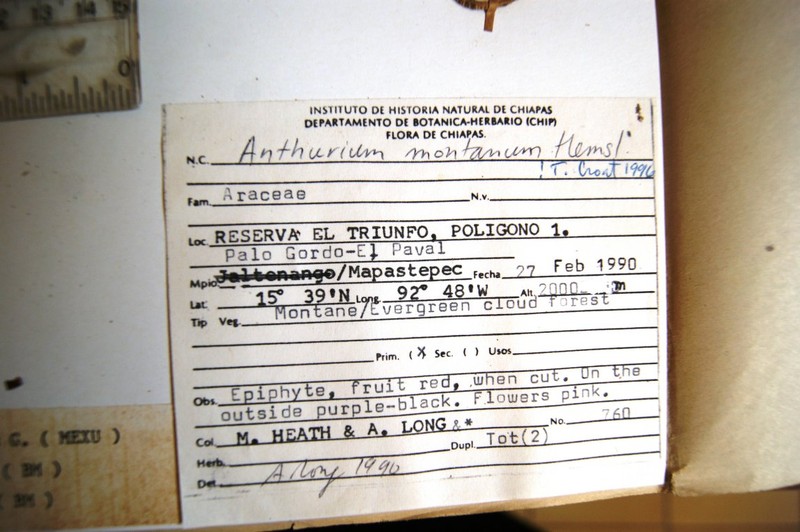 15
14
13
0
INSTITUTO DE HISTORIA NATURAL DE CHIAPAS
DEPARTAMENTO DE BOTANICA-HERBARIO (CHIP)
FLORA DE CHIAPAS.
N.C. Anthurium montanum Hemsl.
! T. Croat 1996
Fam. Araceae N.v.
Loc. RESERVA EL TRIUNFO, POLIGONO 1.
Palo Gordo-El Paval
Mpio Jaltenango/Mapastepec Fecha 27 Feb 1990
Lat. 15° 39'N Long. 92° 48'W Alt. 2000 m
Tip Veg. Montane/Evergreen cloud forest
Prim. (X Sec. ( ) Usos
Obs. Epiphyte, fruit red, when cut. On the
outside purple-black. Flowers pink.
Col. M. HEATH & A. LONG &* No. 760
Herb. Dupl. Tot(2)
Det. A Long 1990
G. ( MEXU )
( BM )
( BM )